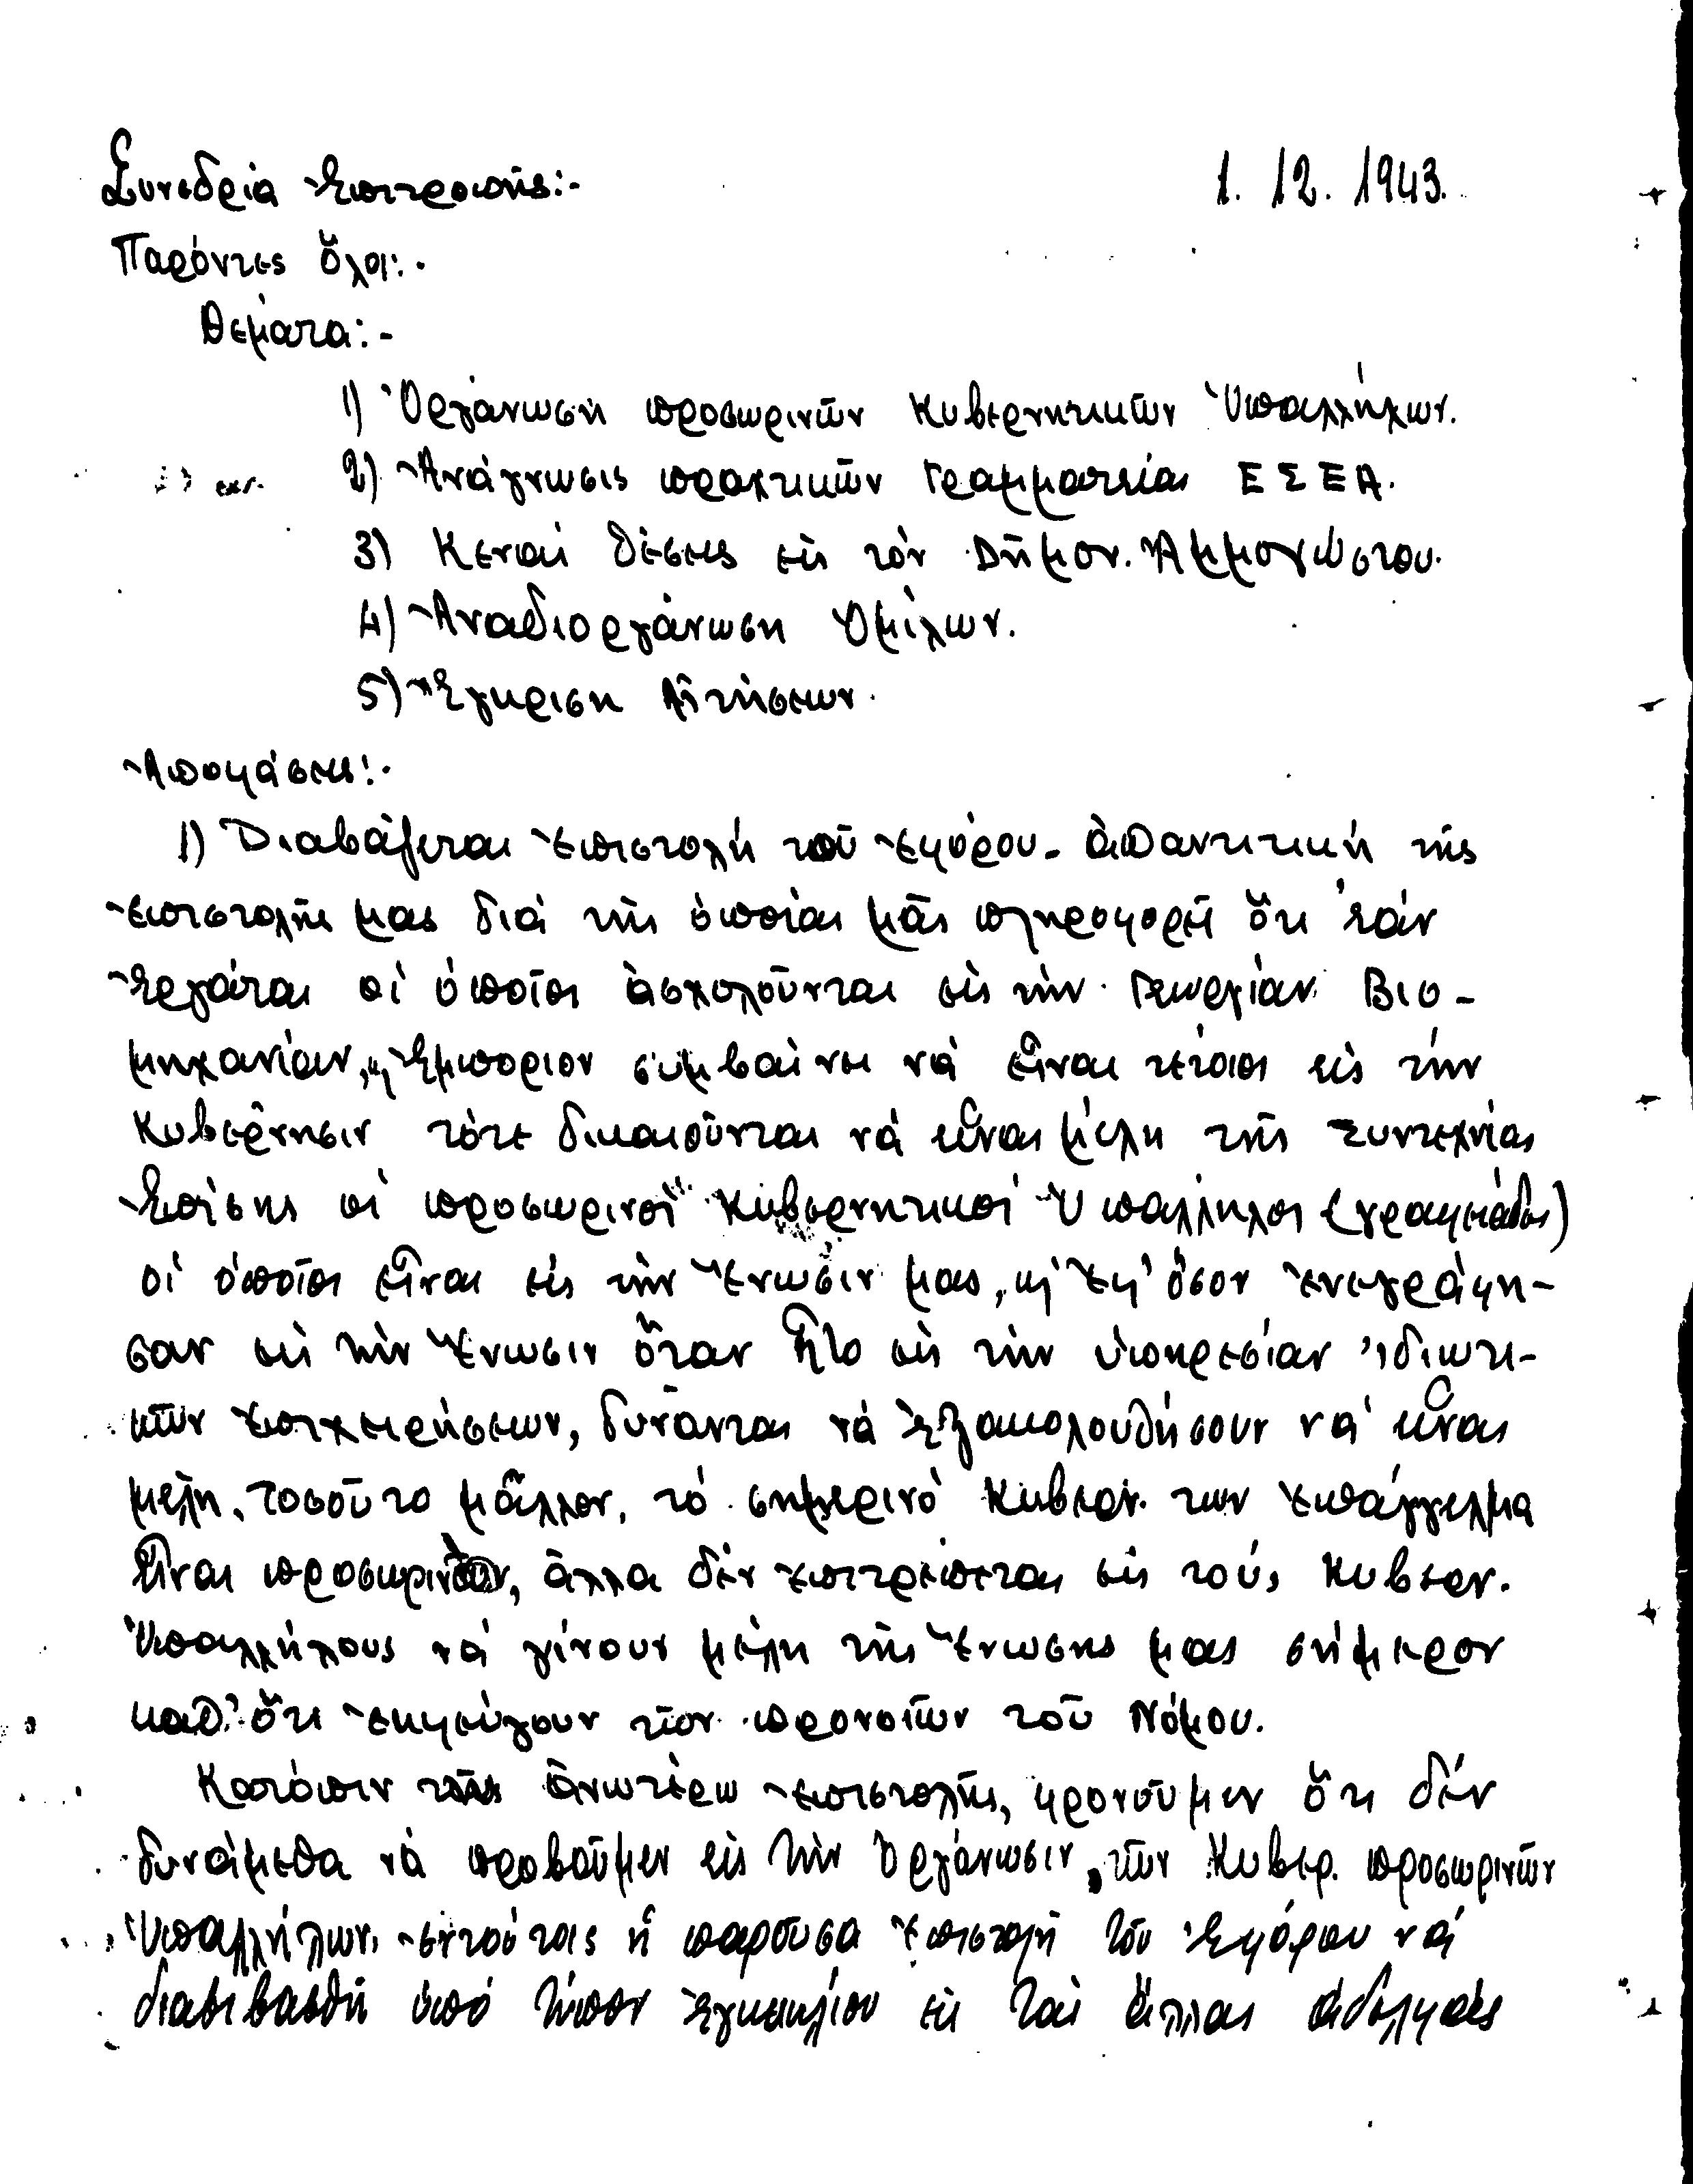 Συνεδρία Ἐπιτροπῆς:- 1. 12. 1943.
Παρόντες ὅλοι:.
Θέματα:-
1) Ὀργάνωση προσωρινῶν Κυβερνητικῶν Ὑπαλλήλων.
2) Ἀνάγνωσις πρακτικῶν Γραμματείας ΕΣΕΑ.
3) Κεναί θέσεις εἰς τόν Δημον. Ἀμμοχώστου.
4) Ἀναδιοργάνωση Ὁμίλων.
5) Ἔγκριση Αἰτήσεων.
Ἀποφάσεις:.
1) Διαβάζεται ἐπιστολή τοῦ Ἐφόρου - ἀπαντητική τῆς
ἐπιστολῆς μας διά τῆς ὁποίας μᾶς πληροφορεῖ ὅτι ἐάν
Ἐργάται οἱ ὁποῖοι ἀσχολοῦνται εἰς τήν Γεωργίαν Βιο-
μηχανίαν, ϗ Ἐμποριον συμβαίνει νά εἶναι τέτοιοι εἰς τήν
Κυβέρνησιν τότε δικαιοῦνται νά εἶναι μέλη τῆς Συντεχνίας
Ἐπίσης οἱ προσωρινοί Κυβερνητικοί Ὑπάλληλοι (γραφειάδες)
οἱ ὁποῖοι εἶναι εἰς τήν Ἕνωσιν μας, ϗ ἐφ' ὅσον ἐνεγράφη-
σαν εἰς τήν Ἕνωσιν ὅταν ἦτο εἰς τήν ὑπηρεσίαν ἰδιωτι-
κῶν ἐπιχειρήσεων, δύνανται νά ἐξακολουθήσουν νά εἶναι
μέλη, τοσοῦτο μᾶλλον, τό σημερινό Κυβερν. των ἐπάγγελμα
εἶναι προσωρινόν, ἀλλα δέν ἐπιτρέπεται εἰς τούς Κυβερν.
Ὑπαλλήλους νά γίνουν μέλη τῆς Ἕνωσης μας σήμερον
καθ' ὅτι ἐκφεύγουν τῶν προνοιῶν τοῦ Νόμου.
Κατόπιν τῆς ἀνωτέρω ἐπιστολῆς, φρονοῦμεν ὅτι δέν
δυνάμεθα νά προβοῦμεν εἰς τήν Ὀργάνωσιν, τῶν Κυβερ. προσωρινῶν
Ὑπαλλήλων. Ἐντούτοις ἡ παροῦσα ἐπιστολή τοῦ Ἐφόρου νά
διαβιβασθῆ ὑπό τύπον ἐγκυκλίου εἰς τάς ἄλλας ἀδελφάς